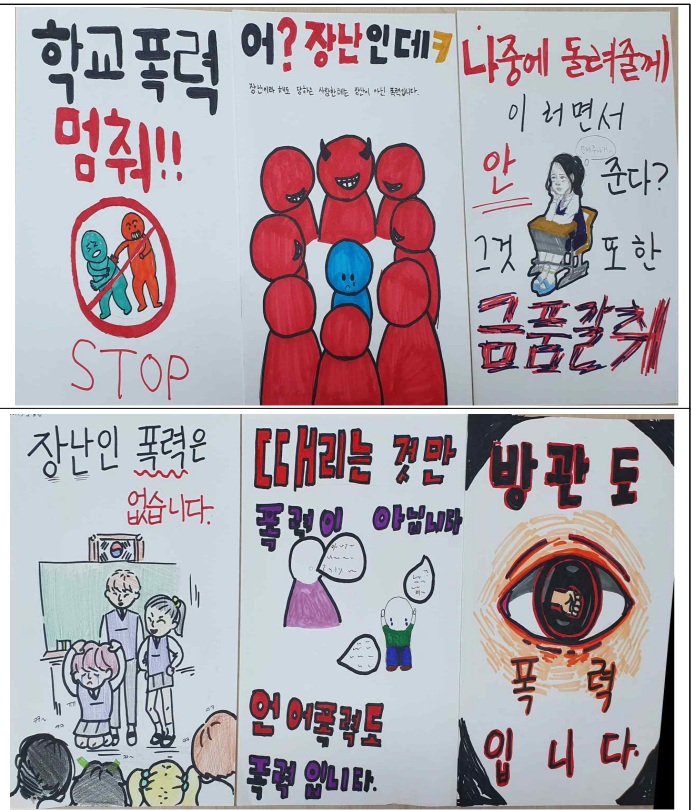 학교폭력
멈춰!!
STOP
어?장난인데ㅋ
장난이라 해도 당하는 사람한테는 장난이 아닌 폭력입니다.
나중에 돌려줄게
이러면서
안 준다?
그것 또한
금품갈취
장난인 폭력은
없습니다.
때리는 것만
폭력이 아닙니다
언어폭력도
폭력입니다.
방관도
폭력
입니다.